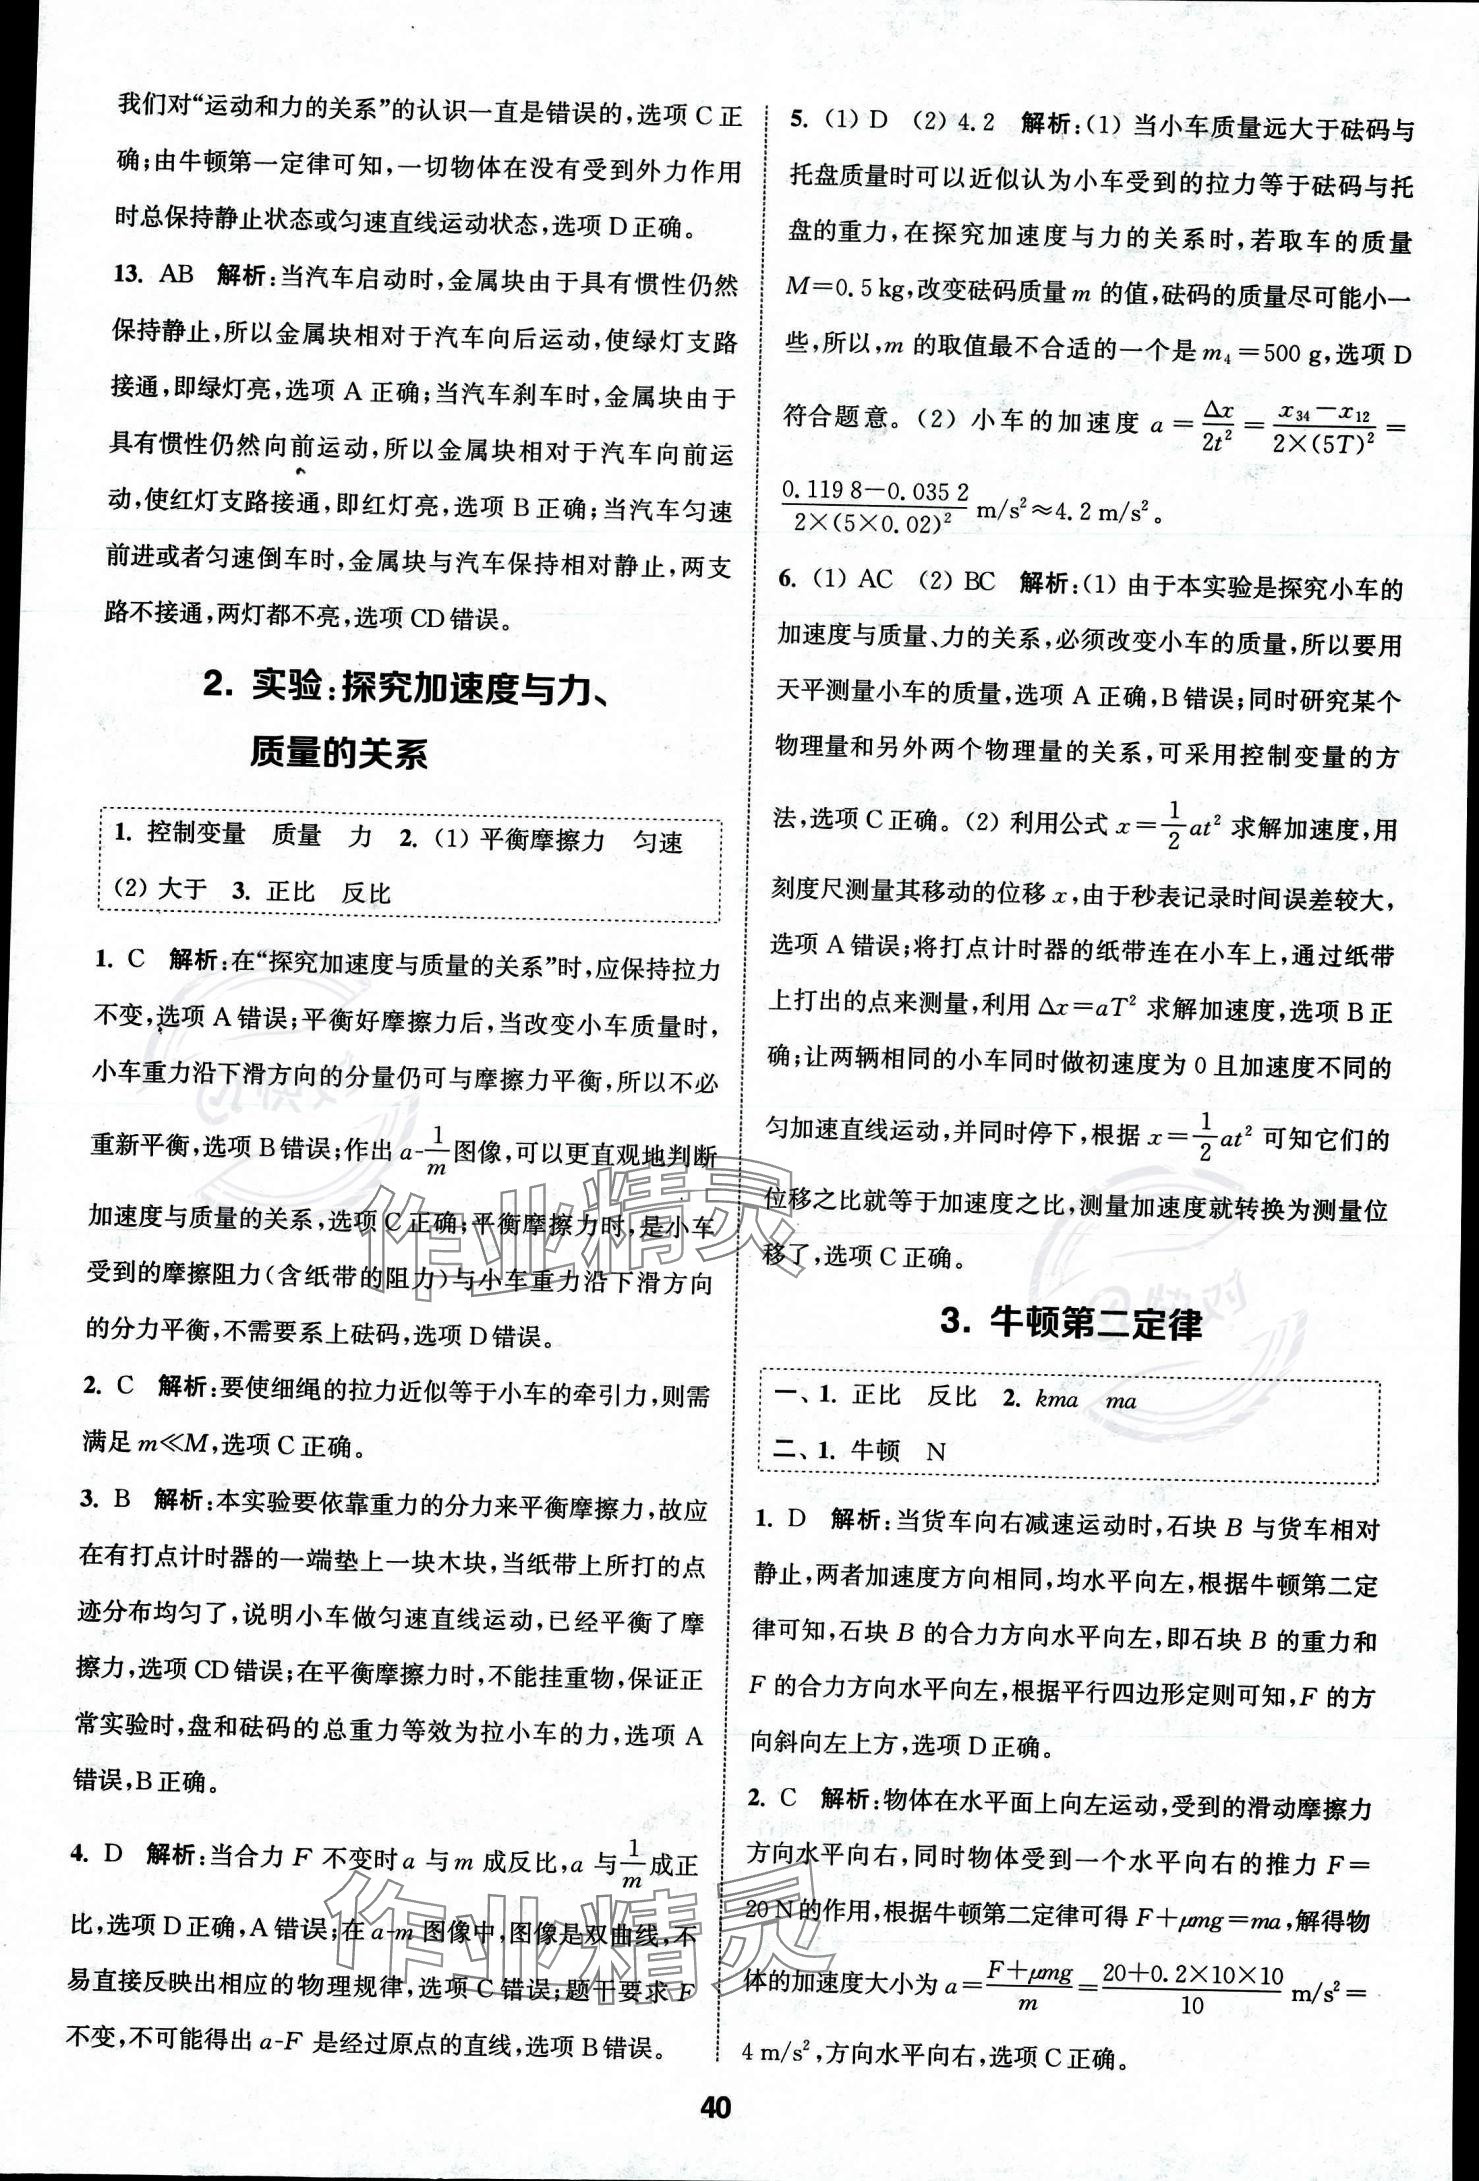 我们对“运动和力的关系”的认识一直是错误的，选项 C 正
确；由牛顿第一定律可知，一切物体在没有受到外力作用
时总保持静止状态或匀速直线运动状态，选项 D 正确。
13. AB 解析：当汽车启动时，金属块由于具有惯性仍然
保持静止，所以金属块相对于汽车向后运动，使绿灯支路
接通，即绿灯亮，选项 A 正确；当汽车刹车时，金属块由于
具有惯性仍然向前运动，所以金属块相对于汽车向前运
动，使红灯支路接通，即红灯亮，选项 B 正确；当汽车匀速
前进或者匀速倒车时，金属块与汽车保持相对静止，两支
路不接通，两灯都不亮，选项 CD 错误。
2. 实验：探究加速度与力、
质量的关系
1. 控制变量 质量 力 2. (1) 平衡摩擦力 匀速
(2) 大于 3. 正比 反比
1. C 解析：在“探究加速度与质量的关系”时，应保持拉力
不变，选项 A 错误；平衡好摩擦力后，当改变小车质量时，
小车重力沿下滑方向的分量仍可与摩擦力平衡，所以不必
重新平衡，选项 B 错误；作出 a-1/m 图像，可以更直观地判断
加速度与质量的关系，选项 C 正确；平衡摩擦力时，是小车
受到的摩擦阻力(含纸带的阻力)与小车重力沿下滑方向
的分力平衡，不需要系上砝码，选项 D 错误。
2. C 解析：要使细绳的拉力近似等于小车的牵引力，则需
满足 m≪M，选项 C 正确。
3. B 解析：本实验要依靠重力的分力来平衡摩擦力，故应
在有打点计时器的一端垫上一块木块，当纸带上所打的点
迹分布均匀了，说明小车做匀速直线运动，已经平衡了摩
擦力，选项 CD 错误；在平衡摩擦力时，不能挂重物，保证正
常实验时，盘和砝码的总重力等效为拉小车的力，选项 A
错误，B 正确。
4. D 解析：当合力 F 不变时 a 与 m 成反比，a 与 1/m 成正
比，选项 D 正确，A 错误；在 a-m 图像中，图像是双曲线，不
易直接反映出相应的物理规律，选项 C 错误；题干要求 F
不变，不可能得出 a-F 是经过原点的直线，选项 B 错误。
5. (1) D (2) 4.2 解析：(1) 当小车质量远大于砝码与
托盘质量时可以近似认为小车受到的拉力等于砝码与托
盘的重力，在探究加速度与力的关系时，若取车的质量
M=0.5 kg，改变砝码质量 m 的值，砝码的质量尽可能小一
些，所以，m 的取值最不合适的一个是 m₄=500 g，选项 D
符合题意。(2) 小车的加速度 a=Δx/2t²=(x₃₄-x₁₂)/(2×(5T)²)=
(0.119 8-0.035 2)/(2×(5×0.02)²) m/s²≈4.2 m/s²。
6. (1) AC (2) BC 解析：(1) 由于本实验是探究小车的
加速度与质量、力的关系，必须改变小车的质量，所以要用
天平测量小车的质量，选项 A 正确，B 错误；同时研究某个
物理量和另外两个物理量的关系，可采用控制变量的方
法，选项 C 正确。(2) 利用公式 x=1/2 at² 求解加速度，用
刻度尺测量其移动的位移 x，由于秒表记录时间误差较大，
选项 A 错误；将打点计时器的纸带连在小车上，通过纸带
上打出的点来测量，利用 Δx=aT² 求解加速度，选项 B 正
确；让两辆相同的小车同时做初速度为 0 且加速度不同的
匀加速直线运动，并同时停下，根据 x=1/2 at² 可知它们的
位移之比就等于加速度之比，测量加速度就转换为测量位
移了，选项 C 正确。
3. 牛顿第二定律
一、1. 正比 反比 2. kma ma
二、1. 牛顿 N
1. D 解析：当货车向右减速运动时，石块 B 与货车相对
静止，两者加速度方向相同，均水平向左，根据牛顿第二定
律可知，石块 B 的合力方向水平向左，即石块 B 的重力和
F 的合力方向水平向左，根据平行四边形定则可知，F 的方
向斜向左上方，选项 D 正确。
2. C 解析：物体在水平面上向左运动，受到的滑动摩擦力
方向水平向右，同时物体受到一个水平向右的推力 F=
20 N 的作用，根据牛顿第二定律可得 F+μmg=ma，解得物
体的加速度大小为 a=(F+μmg)/m=(20+0.2×10×10)/10 m/s²=
4 m/s²，方向水平向右，选项 C 正确。
40
作业精灵
作业精灵
快对
快对